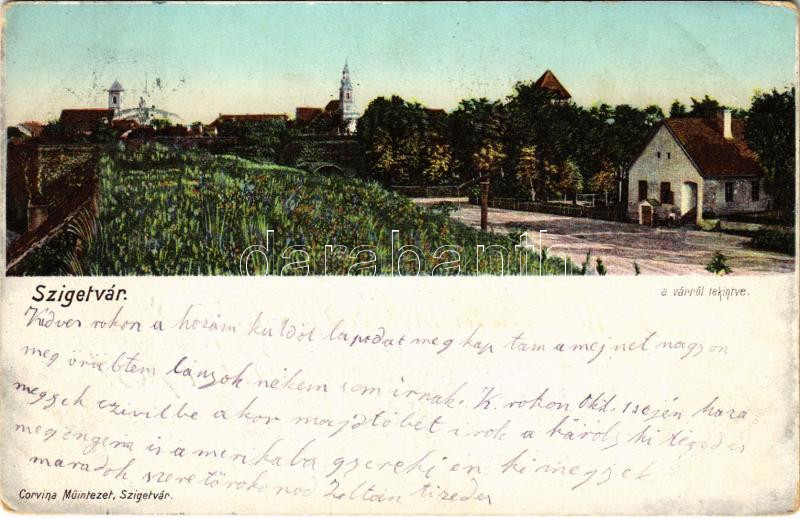 darabanth
Szigetvár.
a várról tekintve.
Kedves rokon a hozám küldöt lapodat meg kap tam amejnet nagyon
meg örültem lányok nékem sem irnak. K. rokon Okt. 1sején haza
megyek czivilbe akor majd több et irok a károly ki
meg engem is amerikaba gyere ki en ki megyek
maradok szerető rokonod Zoltán tizedes
Corvina Műintezet, Szigetvár.